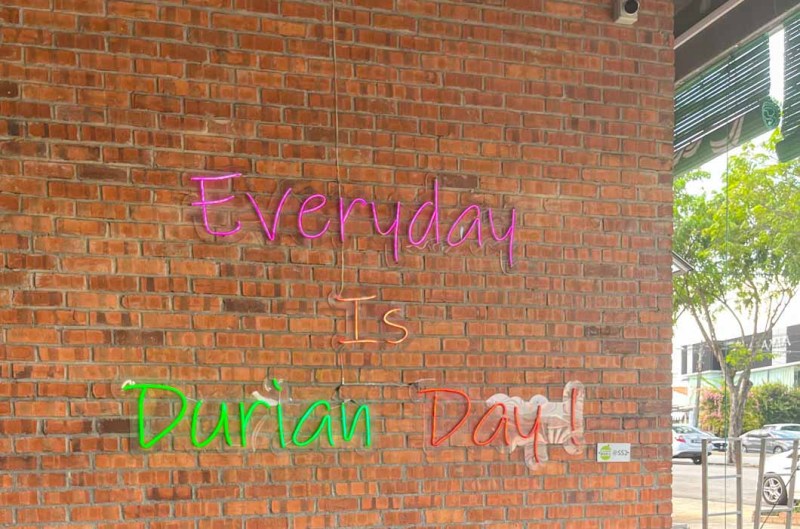 Everyday
Is
Durian Day!